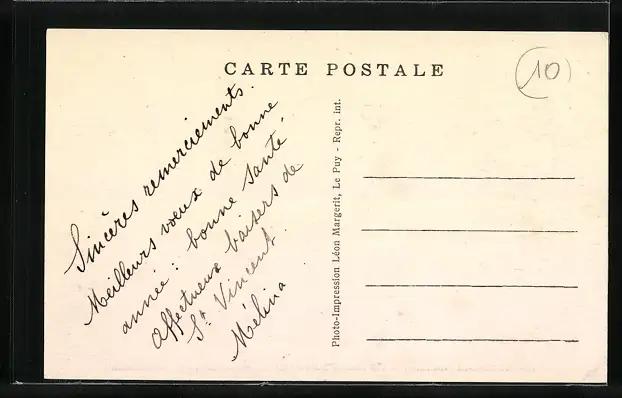 CARTE POSTALE
10
Sincères remerciements.
Meilleurs voeux de bonne
année : bonne santé
Affectueux baisers de
St Vincent.
Mélina
Photo-Impression Léon Margerit, Le Puy - Repr. Int.